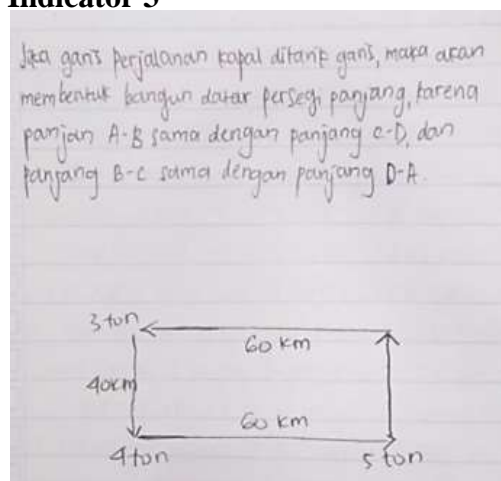 Indicator 3
Jika garis perjalanan kapal ditarik garis, maka akan
membentuk bangun datar persegi panjang, karena
panjan A-B sama dengan panjang C-D, dan
panjang B-C sama dengan panjang D-A.
3 ton
60 km
40km
60 km
4 ton
5 ton